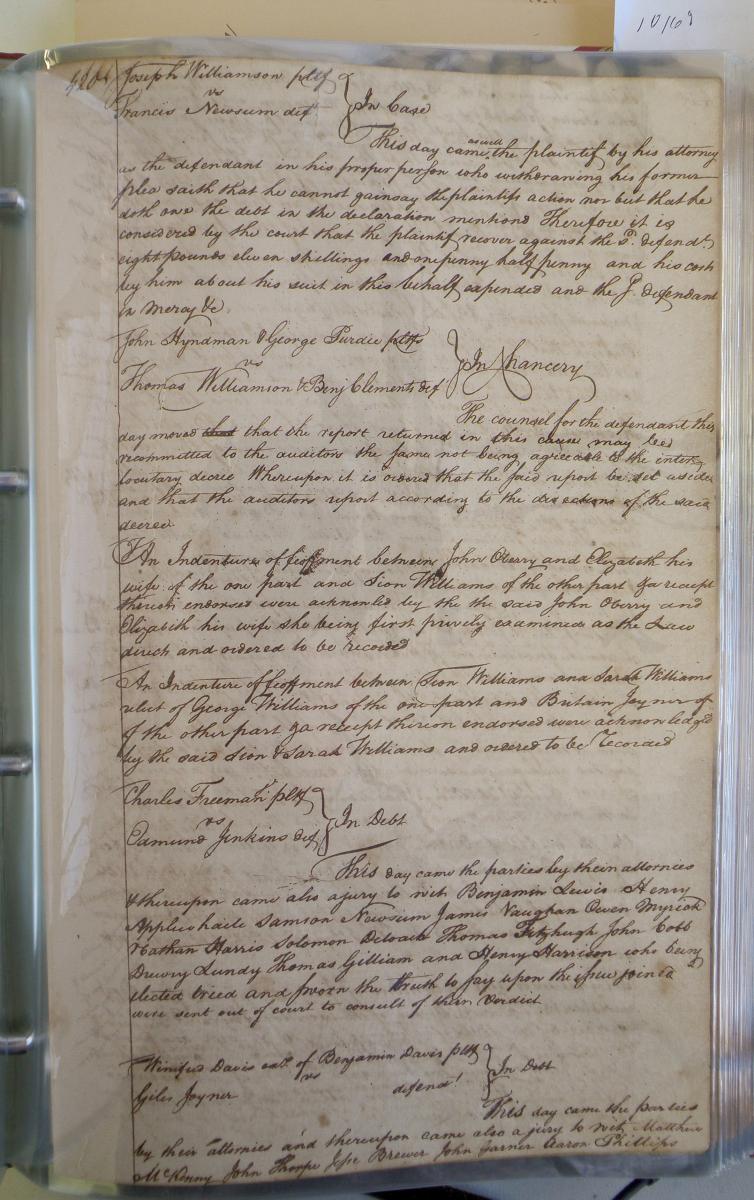 10/69
Joseph Williamson pltf
vs
Francis Newsum deft
In Case
This day came as well the plaintif by his attorney
as the defendant in his proper person who withdrawing his former
plea saith that he cannot gainsay the plaintifs action nor but that he
doth owe the debt in the declaration mentiond Therefore it is
considered by the court that the plaintif recover against the sd. defendt
eight pounds eleven shillings and one penny half penny and his costs
by him about his suit in this behalf expended and the sd. defendant
in mercy &c
John Hyndman & George Purdie pltfs
vs
Thomas Williamson & Benj Clements def
In Chancery
The counsel for the defendant this
day moved that that the report returned in this cause may be
recommitted to the auditors the same not being agreeable to the inter
locutary decree Whereupon it is ordered that the said report be set aside
and that the auditors report according to the directions of the said
decree
An Indenture of feoffment between John Oberry and Elizabeth his
wife of the one part and Sion Williams of the other part & a receipt
thereon endorsed were acknowled by the the said John Oberry and
Elizabeth his wife she being first privily examined as the Law
directs and ordered to be recorded
An Indenture of feoffment between Sion Williams and Sarah Williams
relict of George Williams of the one part and Britain Joyner of
of the other part & a receipt thereon endorsed were acknowledged
by the said Sion & Sarah Williams and ordered to be recorded
Charles Freeman pltf
vs
Edmund Jenkins def
In Debt
This day came the parties by their attornies
& thereupon came also a jury to wit Benjamin Lewis Henry
Applewhaite Samson Newsum James Vaughan Owen Myrick
Nathan Harris Solomon Deloach Thomas Fitzhugh John Cobb
Drewry Lundy Thomas Gilliam and Henry Harrison who being
elected tried and sworn the truth to say upon the issue joined
were sent out of court to consult of their verdict
Winifred Davis exx. of Benjamin Davis pltf
vs
Giles Joyner defendt
In Debt
This day came the parties
by their attornies and thereupon came also a jury to wit Matthew
McKenny John Thorpe Jesse Brewer John Garner Aaron Phillips